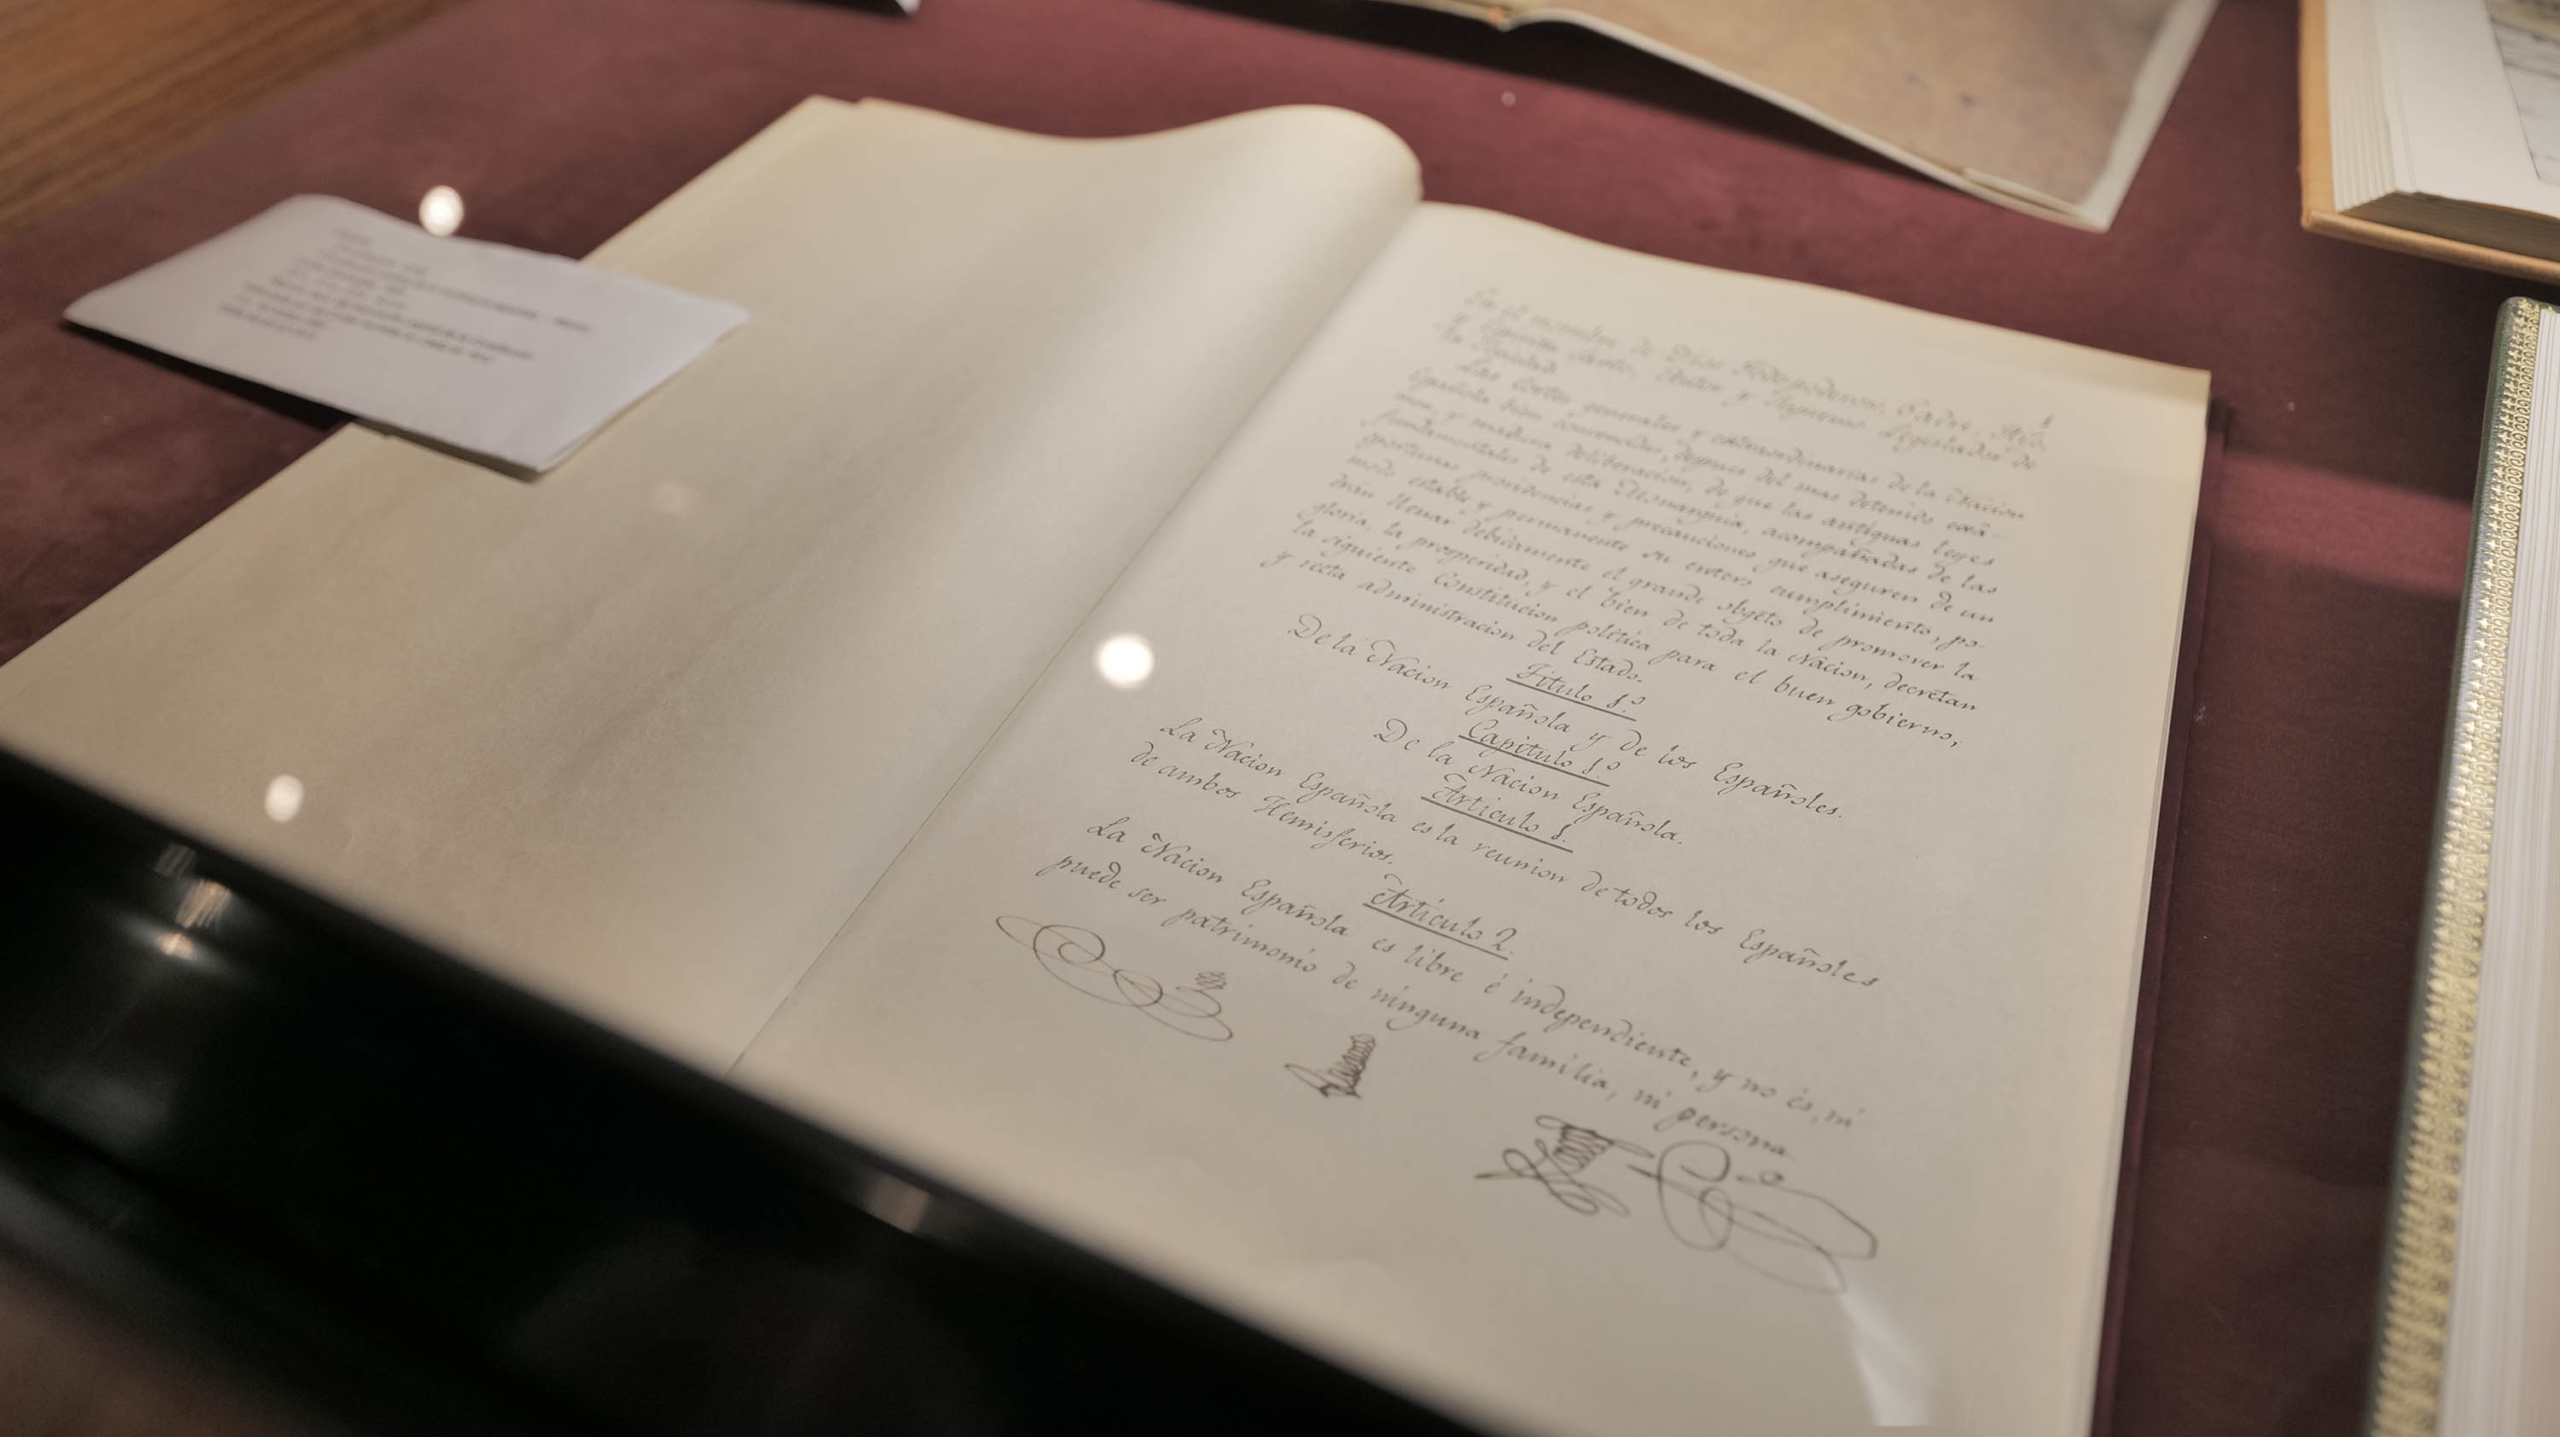 En el nombre de Dios Todopoderoso, Padre, Hijo,
y Espiritu Santo, Autor y Supremo Legislador de
la Sociedad.
Las Cortes generales y extraordinarias de la Nacion
Española, bien convencidas, despues del mas detenido exà-
men, y madura deliberacion, de que las antiguas leyes
fundamentales de esta Monarquia, acompañadas de las
oportunas providencias y precauciones, que aseguren de un
modo estable y permanente su entero cumplimiento, po-
drán llenar debidamente el grande objeto de promover la
gloria, la prosperidad, y el bien de toda la Nacion, decretan
la siguiente Constitucion politica para el buen gobierno,
y recta administracion del Estado.
Titulo 1.º
De la Nacion Española y de los Españoles.
Capitulo 1.º
De la Nacion Española.
Articulo 1.
La Nacion Española es la reunion de todos los Españoles
de ambos Hemisferios.
Articulo 2.
La Nacion Española es libre è independiente, y no és, ni
puede ser patrimonio de ninguna familia, ni persona.